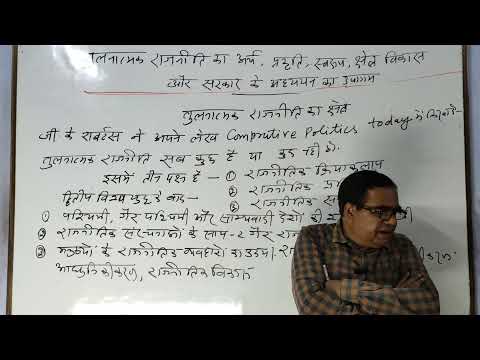 तुलनात्मक राजनीति का अर्थ, प्रकृति, स्वरूप, क्षेत्र विकास
और सरकार के अध्ययन का उपागम
तुलनात्मक राजनीति का क्षेत्र
जी के राबर्टस ने अपने लेख Comprutive Politics today में लिखा है-
तुलनात्मक राजनीति सब कुछ है या कुछ नहीं है।
इसमें तीन पक्ष है - ① राजनीतिक क्रियाकलाप
② राजनीतिक
द्वितीय विश्व युद्ध के बाद - ③ राजनीतिक
① पश्चिमी, गैर पश्चिमी और साम्यवादी देशों की
② राजनीतिक संस्थाओं के साथ-2 गैर
③ मनुष्यों के राजनीतिक व्यवहारों का
आधुनिकीकरण, राजनीतिक विकास